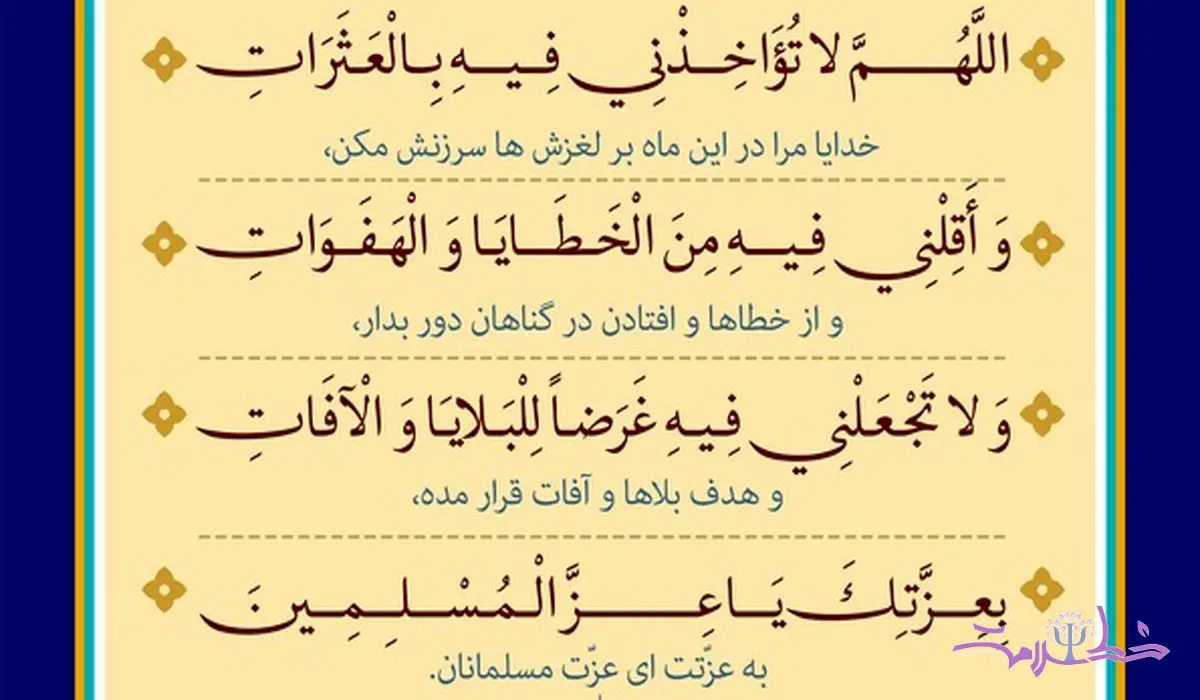 اللَّهُمَّ لا تُؤَاخِذْنِي فِيهِ بِالْعَثَرَاتِ
خدایا مرا در این ماه بر لغزش ها سرزنش مکن،
وَ أَقِلْنِي فِيهِ مِنَ الْخَطَايَا وَ الْهَفَوَاتِ
و از خطاها و افتادن در گناهان دور بدار،
وَ لا تَجْعَلْنِي فِيهِ غَرَضاً لِلْبَلايَا وَ الْآفَاتِ
و هدف بلاها و آفات قرار مده،
بِعِزَّتِكَ يَا عِزَّ الْمُسْلِمِينَ
خط سلامت
به عزّتت ای عزّت مسلمانان.